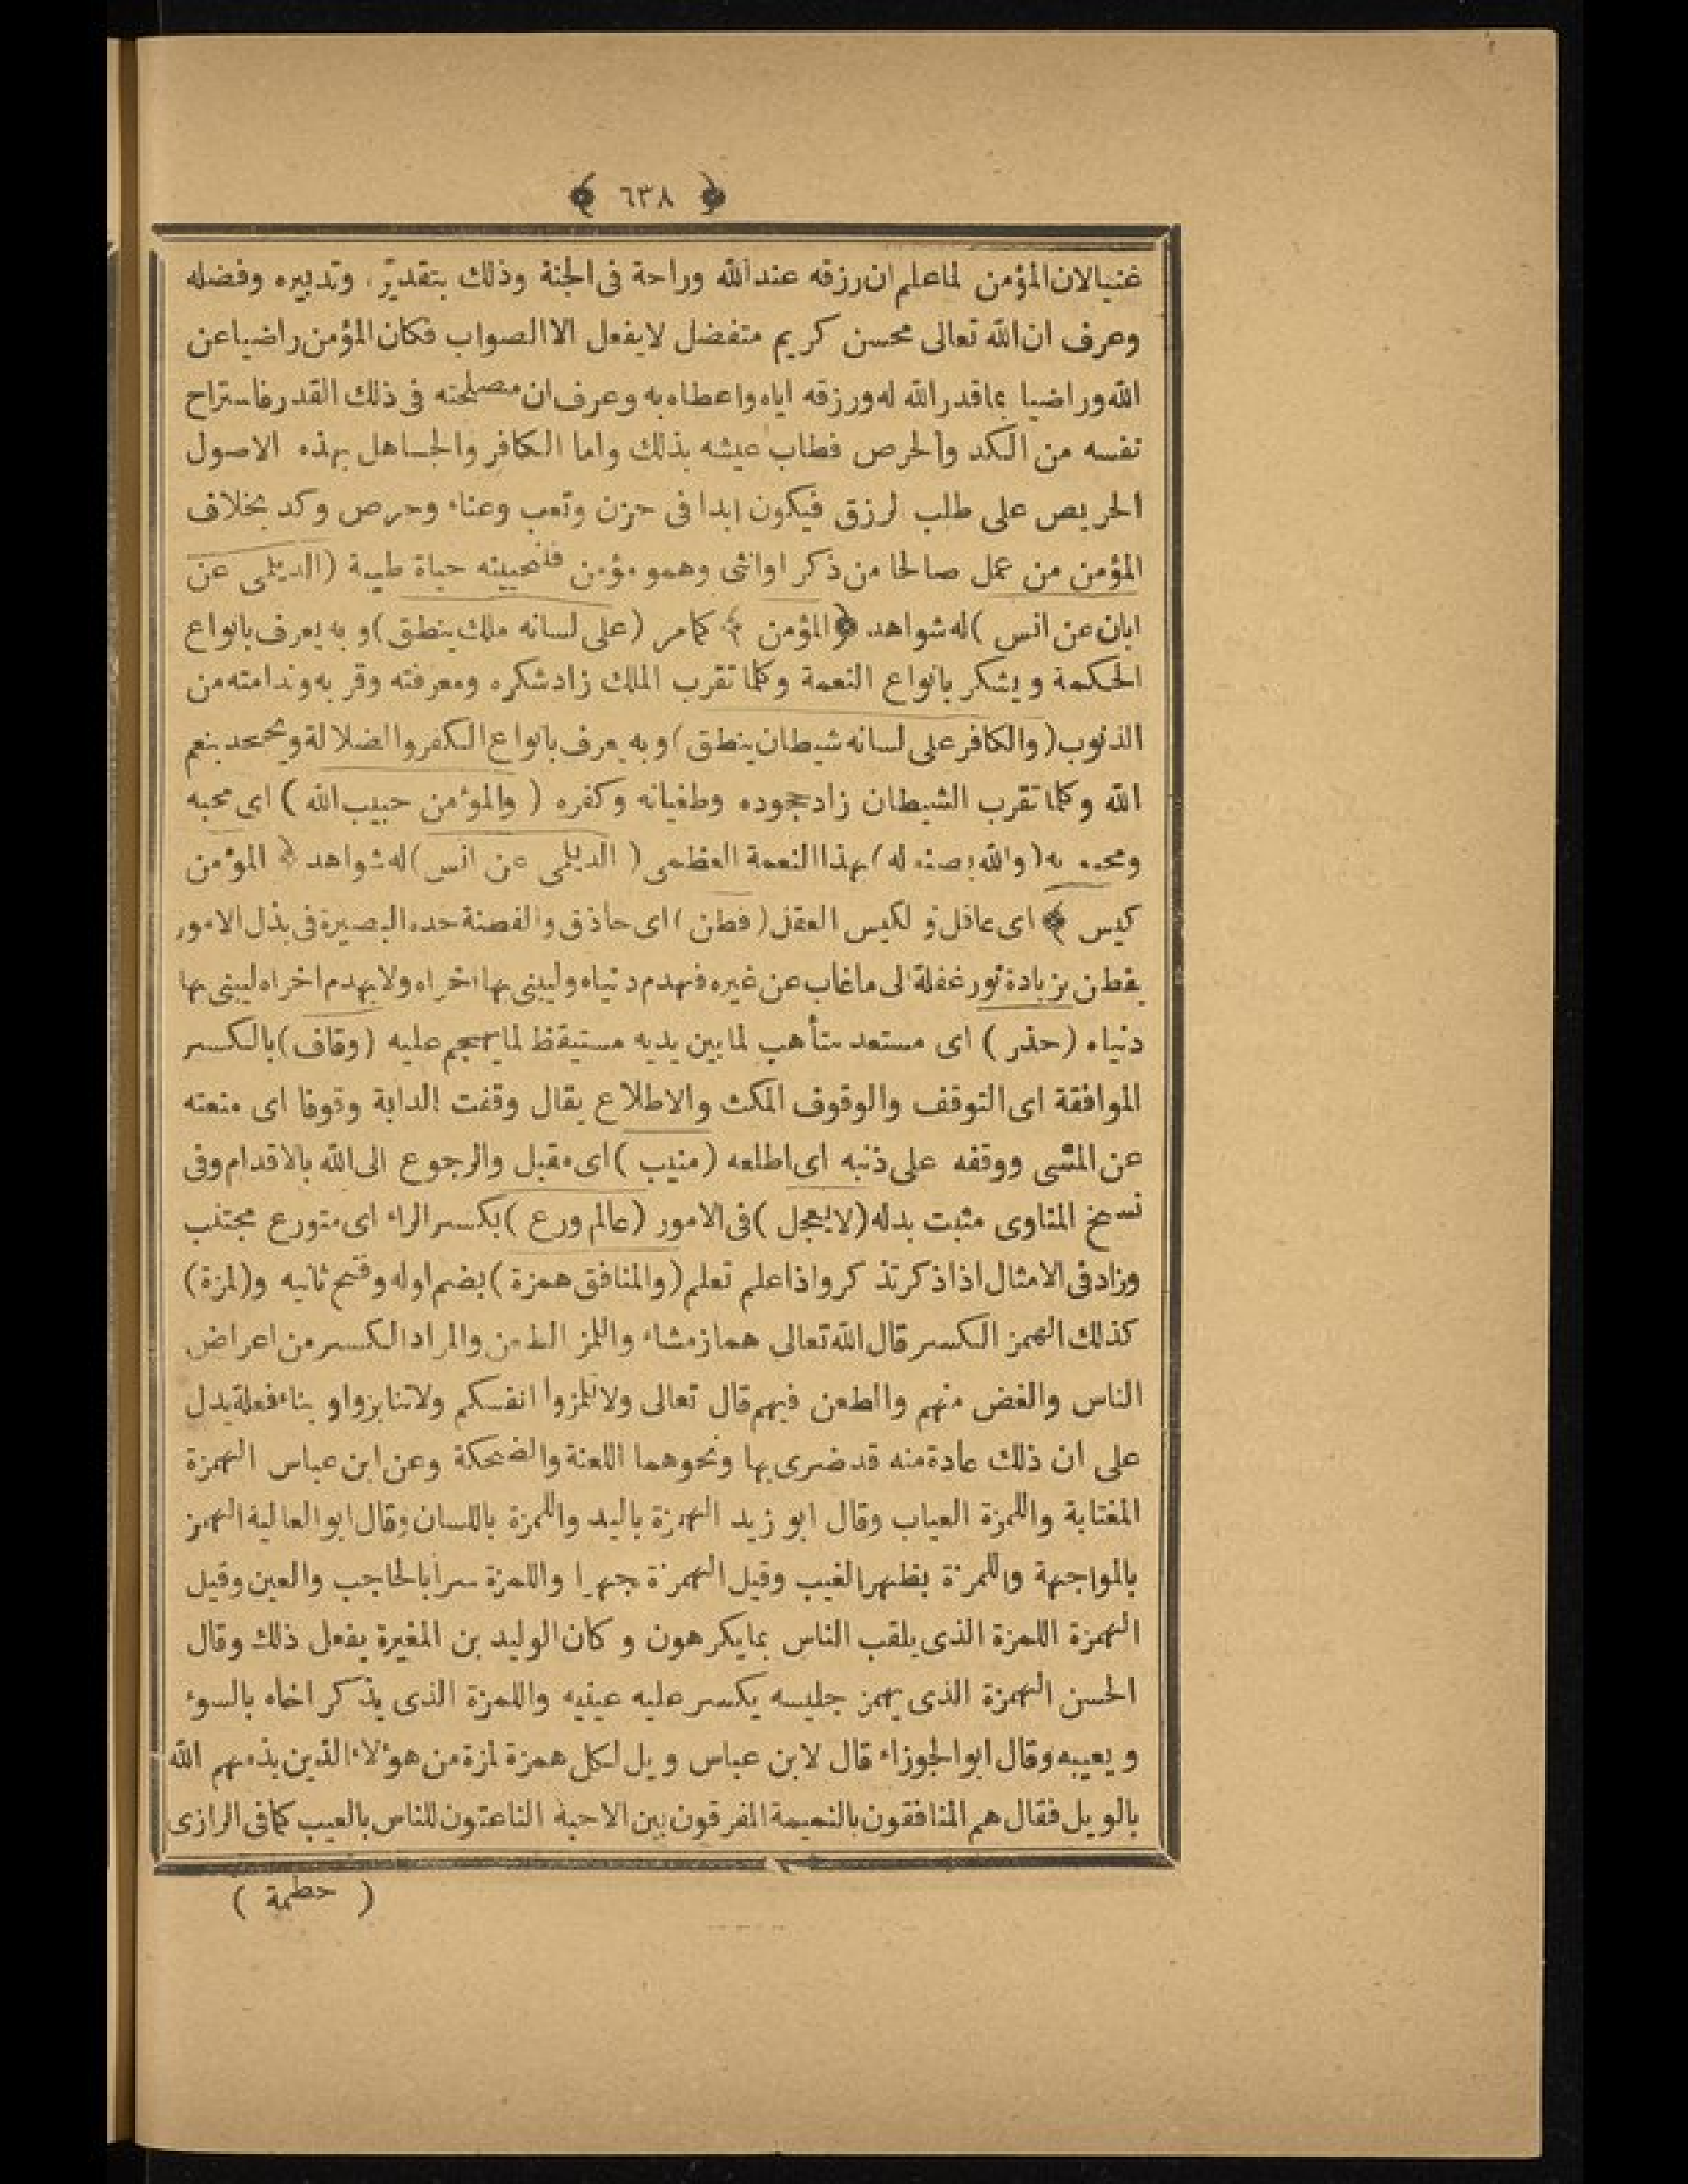 ﴿ ٦٣٨ ﴾
غنيا لان المؤمن لما علم ان رزقه عند الله وراحة فى الجنة وذلك بتقدير، وتدبيره وفضله
وعرف ان الله تعالى محسن كريم متفضل لا يفعل الا الصواب فكان المؤمن راضيا عن
الله وراضيا بما قدر الله له ورزقه اياه واعطاه به وعرف ان مصلحته فى ذلك القدر فاستراح
نفسه من الكد والحرص فطاب عيشه بذلك واما الكافر والجاهل بهذه الاصول
الحريص على طلب لرزق فيكون ابدا فى حزن وتعب وعناء وحرص وكد بخلاف
المؤمن من عمل صالحا من ذكر او انثى وهمو مؤمن فلنحيينه حياة طيبة (الديلمى عن
ابان عن انس) له شواهد ﴿المؤمن﴾ كما مر (على لسانه ملك ينطق) و به يعرف بانواع
الحكمة ويشكر بانواع النعمة وكلما تقرب الملك زاد شكره ومعرفته وقر به وندامته من
الذنوب (والكافر على لسانه شيطان ينطق) وبه يعرف بانواع الكفر والضلالة ويجحد بنعم
الله وكلما تقرب الشيطان زاد جحوده وطغيانه وكفره (والمؤمن حبيب الله) اى محبه
به (والله يصنع له) بهذا النعمة العظمى (الديلمى عن انس) له شواهد ﴿ المؤمن
كيس ﴾ اى عاقل و لكيس العقل (فطن) اى حاذق والفطنة حده البصيرة فى بذل الامور
يفطن بزيادة نور عقله الى ما غاب عن غيره فهدم دنياه وليبنى بها اخراه ولا يهدم اخراه ليبنى بها
دنياه (حذر) اى مستعد متأهب لما بين يديه مستيقظ لما يهجم عليه (وقاف) بالكسر
الموافقة اى التوقف والوقوف المكث والاطلاع يقال وقفت الدابة وقوفا اى منعته
عن المشى ووقفه على ذنبه اى اطلعه (منيب) اى مقبل والرجوع الى الله بالاقدام وفى
نسخ المناوى مثبت بدله (لا يعجل) فى الامور (عالم ورع) بكسر الراء اى متورع مجتنب
وزاد فى الامثال اذا ذكر تذكر واذا علم تعلم (والمنافق همزة) بضم اوله وفتح ثانيه و(لمزة)
كذلك الهمز الكسر قال الله تعالى هماز مشاء واللمز الطعن والمراد الكسر من اعراض
الناس والغض منهم والطعن فيهم قال تعالى ولا تلمزوا انفسكم ولا تنابزوا و بناء فعلة يدل
على ان ذلك عادة منه قد ضرى بها ونحوهما اللعنة والضحكة وعن ابن عباس الهمزة
المغتابة واللمزة العياب وقال ابو زيد الهمزة باليد واللمزة باللسان وقال ابو العالية الهمز
بالمواجهة واللمزة بظهر الغيب وقيل الهمزة جهرا واللمزة سرا بالحاجب والعين وقيل
الهمزة اللمزة الذى يلقب الناس بما يكرهون وكان الوليد بن المغيرة يفعل ذلك وقال
الحسن الهمزة الذى يهمز جليسه يكسر عليه عينيه واللمزة الذى يذكر اخاه بالسوء
ويعيبه وقال ابو الجوزاء قال لابن عباس ويل لكل همزة لمزة من هؤلاء الذين يذمهم الله
بالويل فقال هم المنافقون بالنميمة المفرقون بين الاحبة الناعتون للناس بالعيب كما فى الرازى
( حطمة )